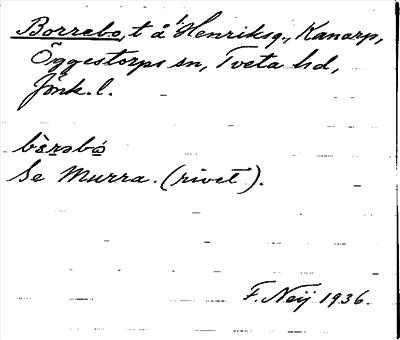 Borrebo, t å 1 Henriksg., Kanarp,
Öggestorps sn, Tveta hd,
Jönk. l.
bòrəbó
Se Murra. (rivet).
F. Neij 1936.